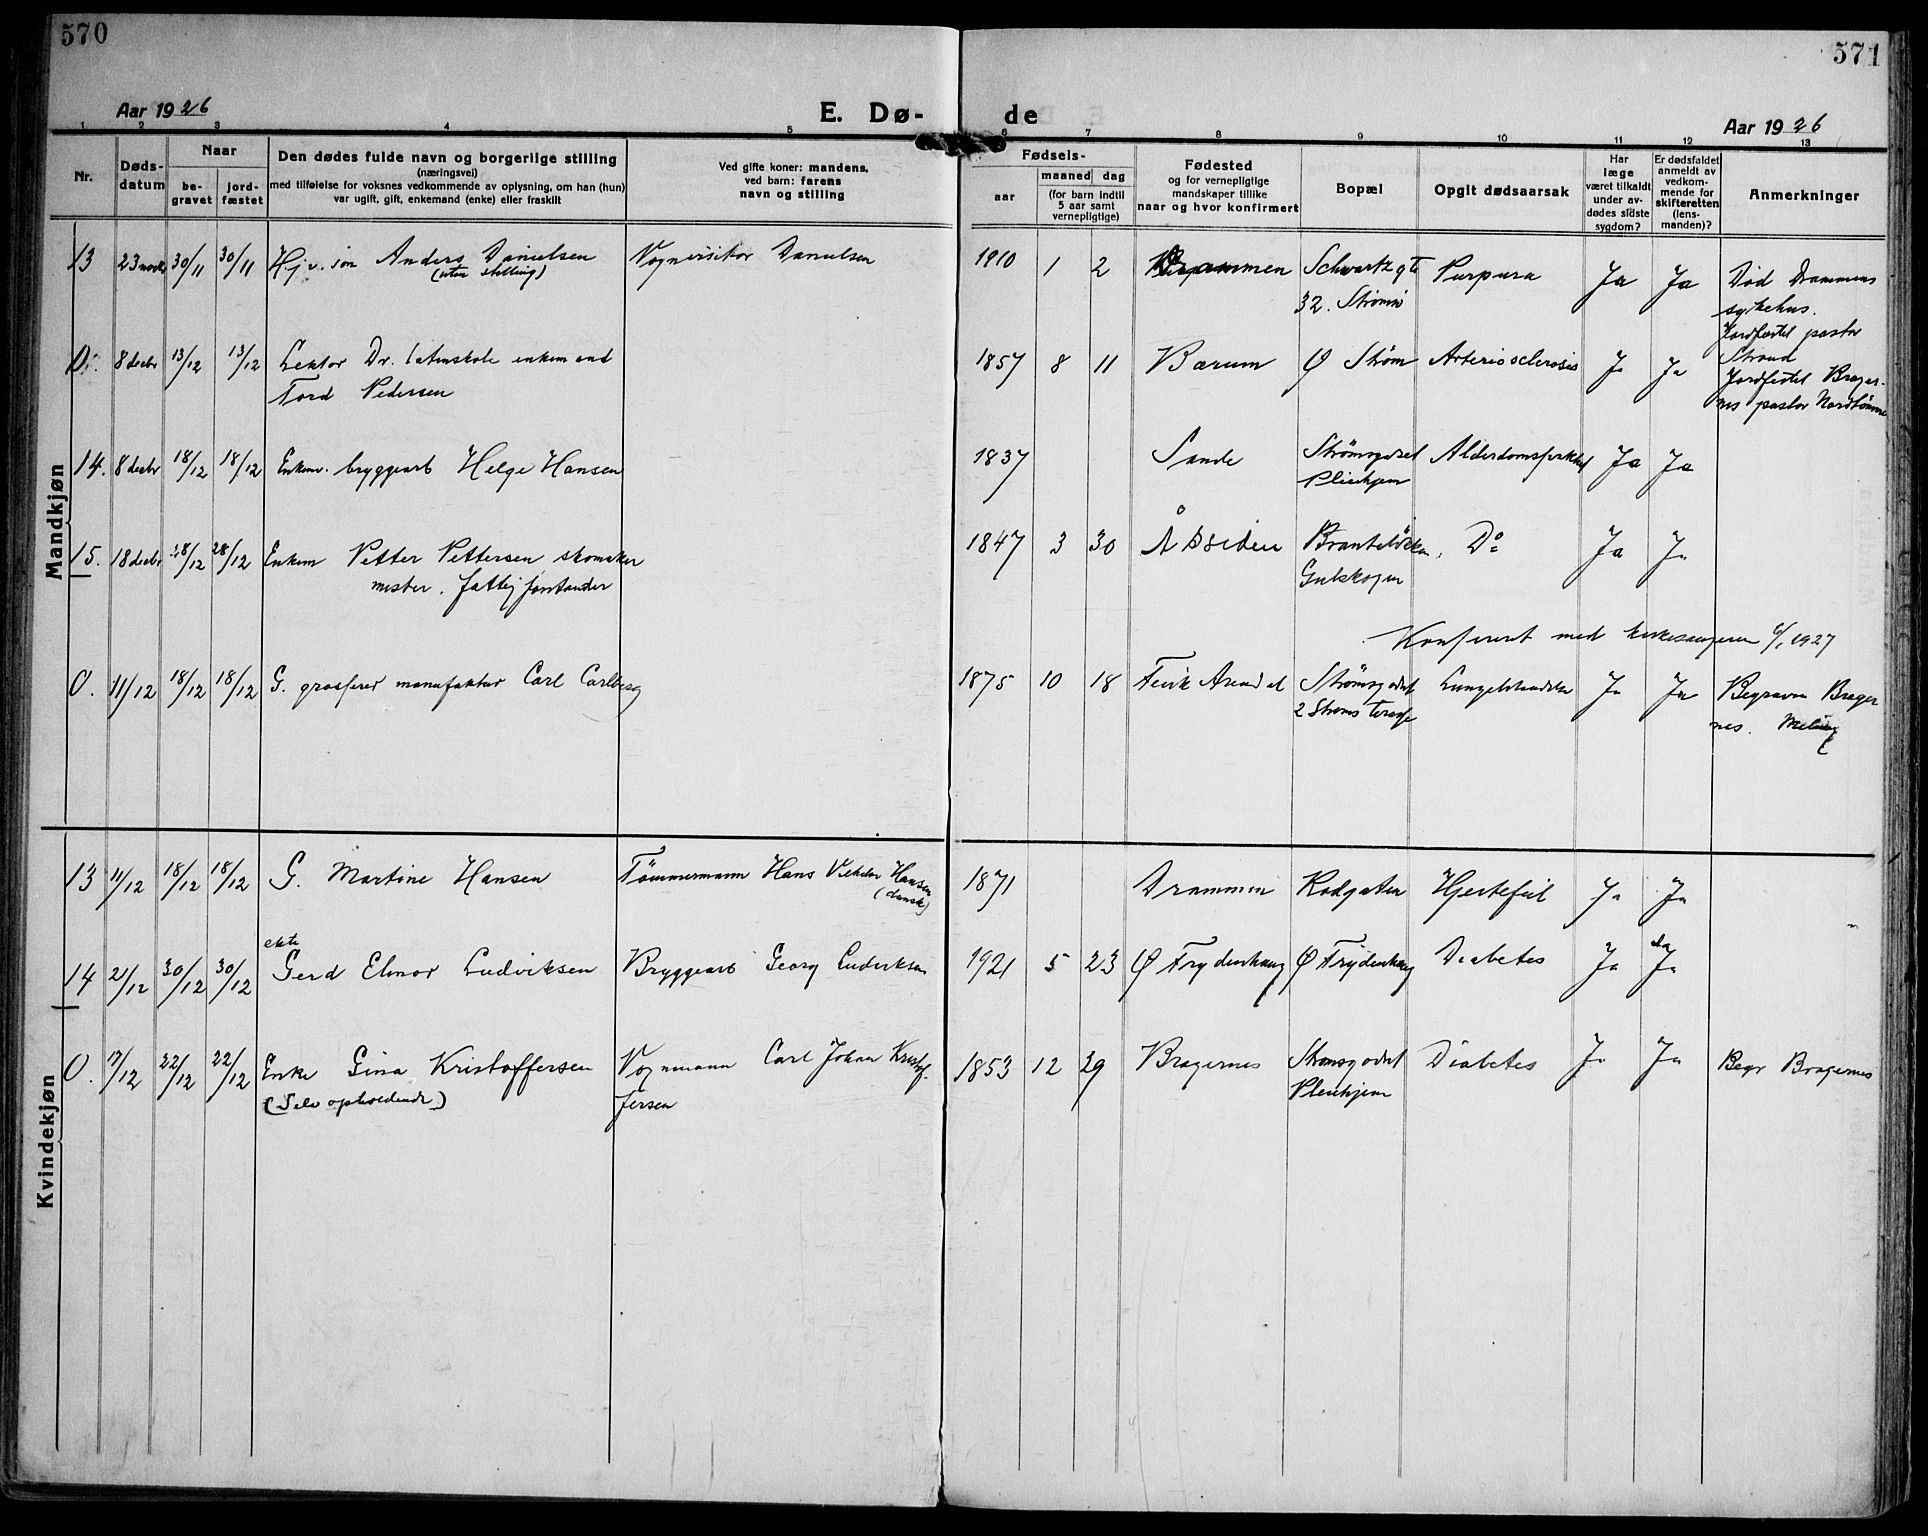 570
571
Aar 1926
E. Dø-
de
Aar 1926
1 2 3 4 5 6 7 8 9 10 11 12 13
Nr.
Døds-
datum
Naar
be-
gravet
jord-
fæstet
Den dødes fulde navn og borgerlige stilling
(næringsvei)
med tilføielse for voksnes vedkommende av oplysning, om han (hun)
var ugift, gift, enkemand (enke) eller fraskilt
Ved gifte koner: mandens,
ved barn: farens
navn og stilling
Fødsels-
aar
maaned dag
(for barn indtil
5 aar samt
vernepligtige)
Fødested
og for vernepligtige
mandskaper tillike
naar og hvor konfirmert
Bopæl
Opgit dødsaarsak
Har
læge
været tilkaldt
under av-
dødes sidste
sygdom?
Er dødsfaldet
anmeldt av
vedkom-
mende for
skifteretten
(lens-
manden)?
Anmerkninger
Mandkjøn
13 23 novbr 30/11 30/11 Hjv. søn Anders Danielsen Vognvisitør Danielsen 1910 1 2 Drammen Schwartzgt Purpura Ja Ja Død Drammens
(uten stilling) 32. Strømsø sykehus.
Jordfæstet pastor
Strand
0. 8 decbr 13/12 13/12 Lektor Dr. latinskole enkemand 1857 8 11 Bærum Ø Strøm Arteriosclerosis Ja Ja Jordfestet Brager-
Tord Pedersen nes pastor Nordtømme
14. 8 decbr 18/12 18/12 Enkem. bryggearb Helge Hansen 1837 Sande Strømsgodset Alderdomssvækket Ja Ja
Pleiehjem
15. 18 decbr 28/12 28/12 Enkem Petter Pettersen skomaker 1847 3 30 Åssiden Do Ja Ja
mester. fattigforstander Gulskogen
Konferert med kirkesangeren 6/1 1927
0. 11/12 18/12 18/12 G. grosserer manufaktur Carl Carlberg 1875 10 18 Fevik Arendal Strømsgodset Lungebetændelse Ja Ja Begraven Brager
2 Strøms Terasse nes.
Kvindekjøn
13 11/12 18/12 18/12 G. Martine Hansen Tømmermann Hans Vilhelm Hansen 1871 Drammen Rødgaten Hjertefeil Ja Ja
(dansk)
14 21/12 30/12 30/12 ekte Gerd Elinor Ludviksen Bryggearb Georg Ludviksen 1921 5 23 Ø Frydenhaug Ø Frydenhaug Diabetes Ja Ja
0. 17/12 22/12 22/12 Enke Gina Kristoffersen Vognmann Carl Johan Kristof- 1853 12 29 Bragernes Strømsgodset Diabetes Ja Ja Begr Bragernes
(Selv opholdende) fersen Pleiehjem